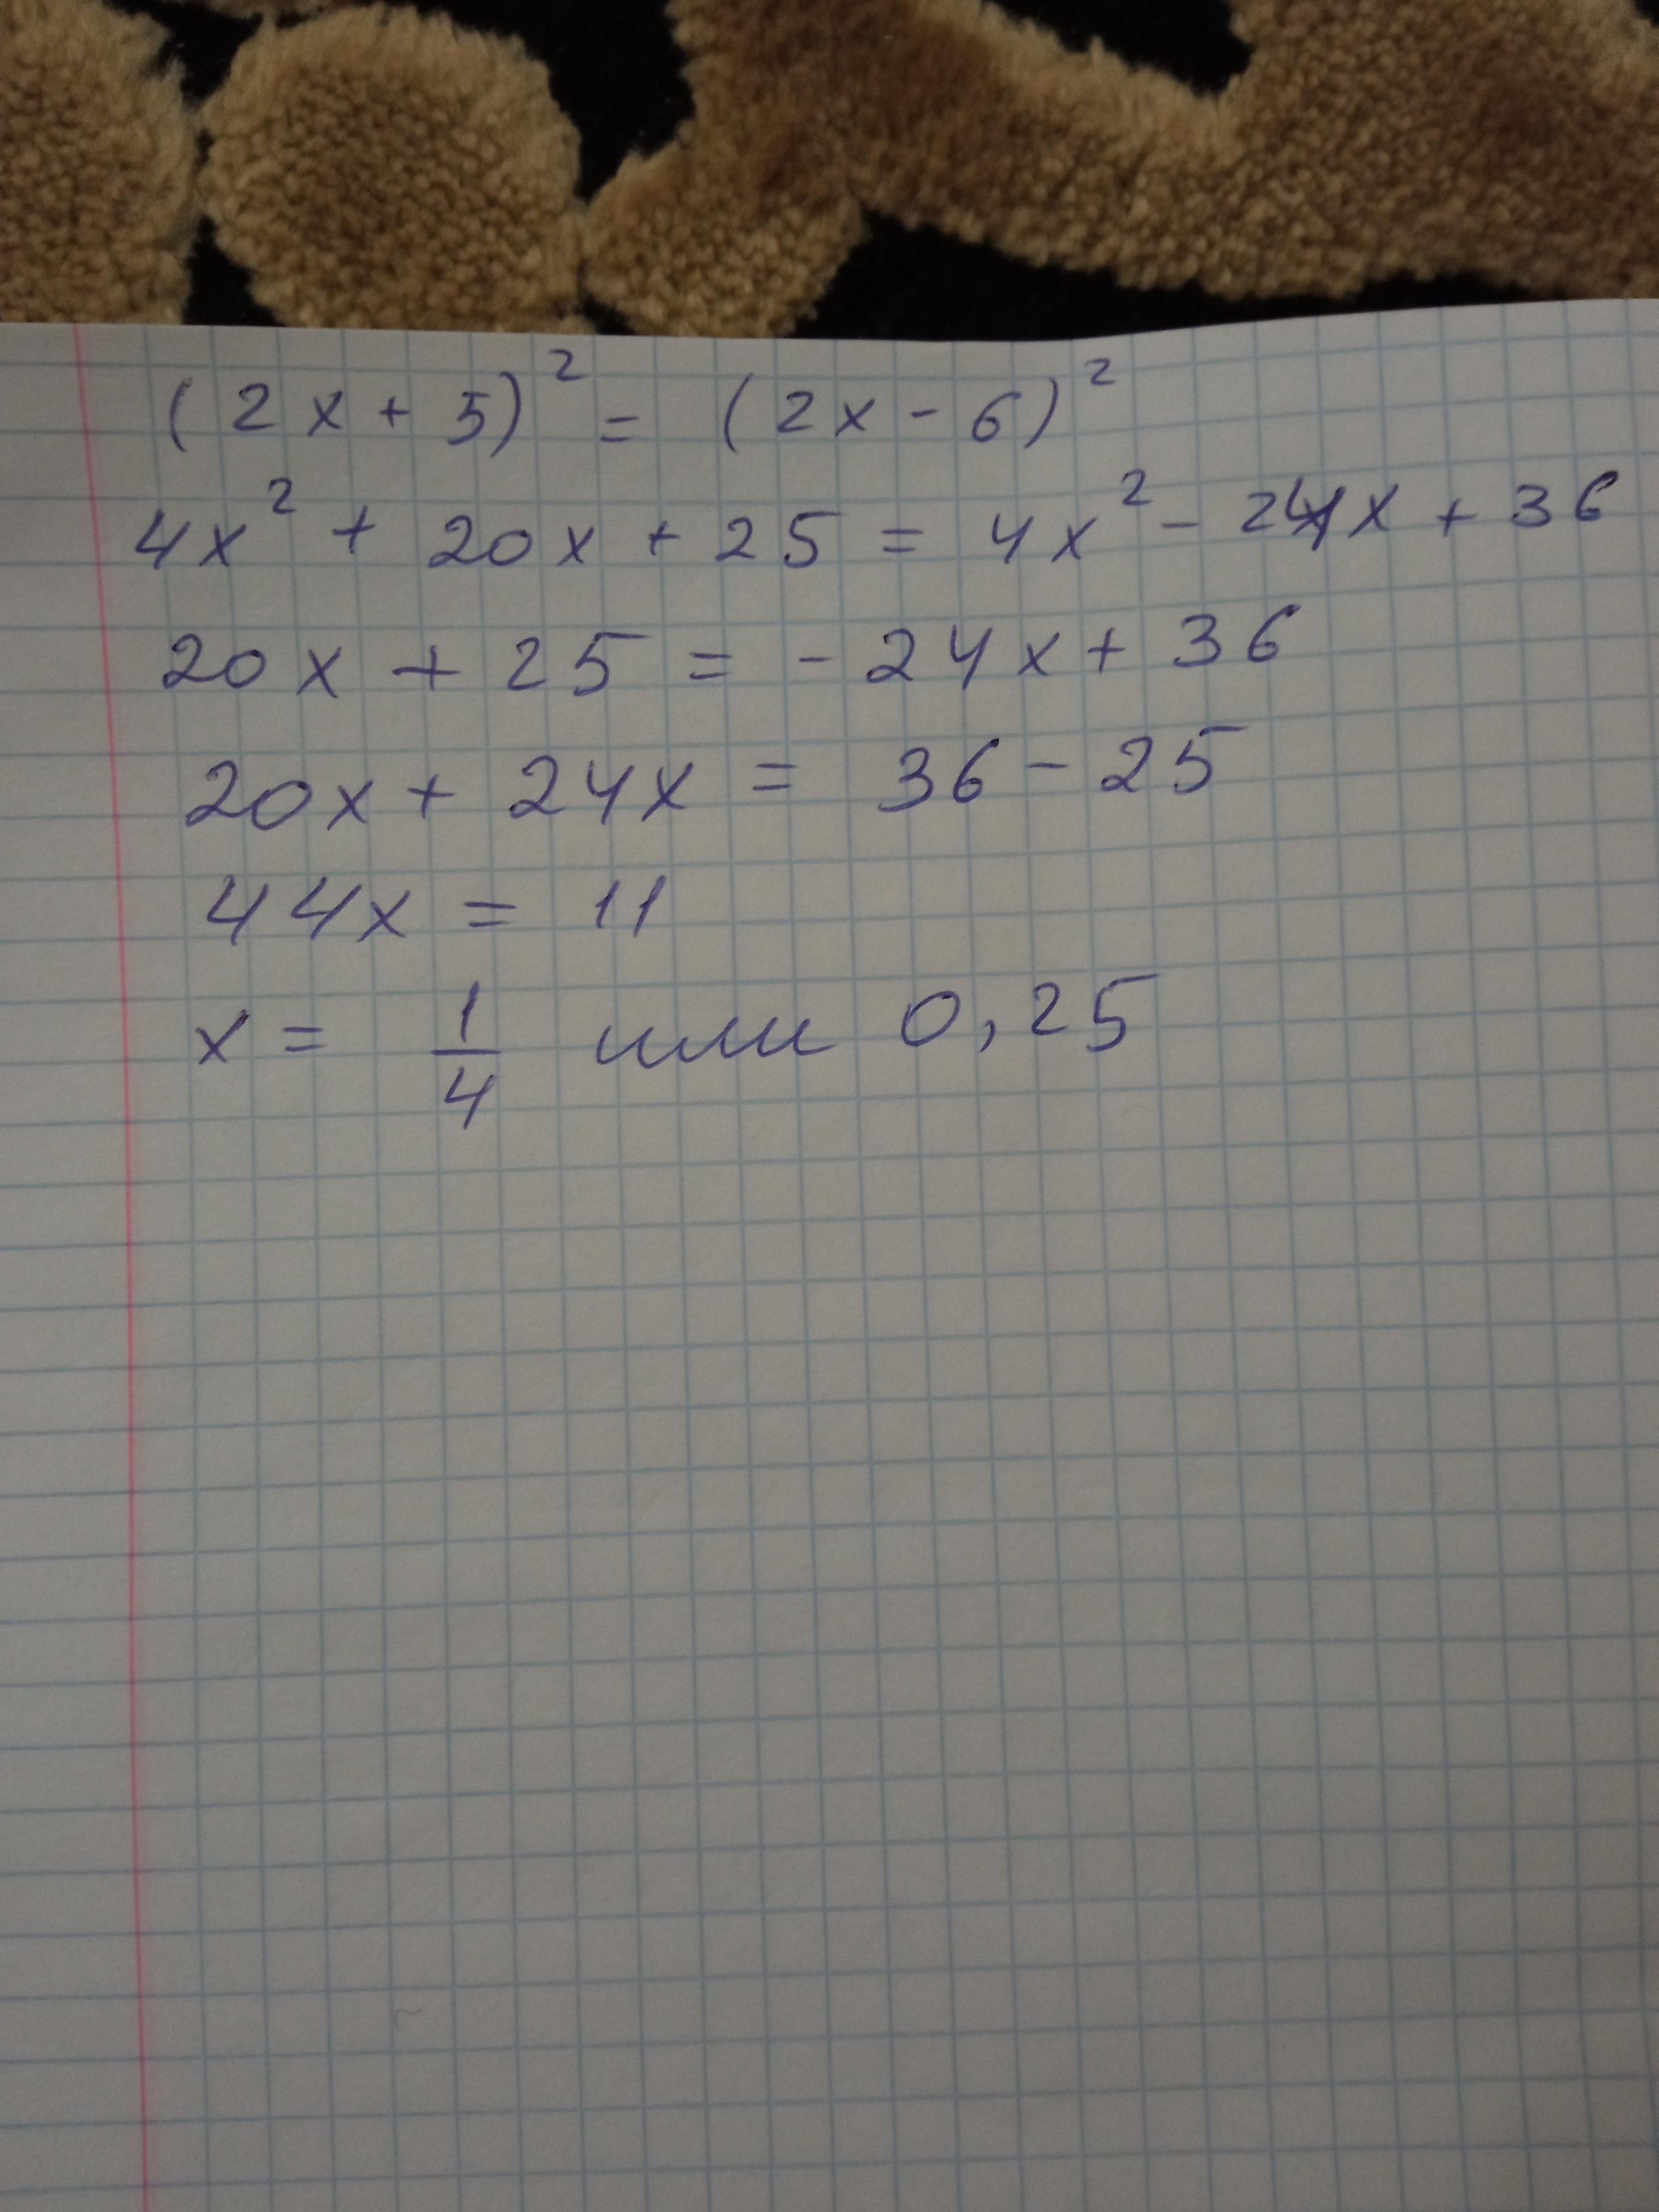 (2x + 5)² = (2x - 6)²
4x² + 20x + 25 = 4x² - 24x + 36
20x + 25 = - 24x + 36
20x + 24x = 36 - 25
44x = 11
x = 1/4 или 0,25